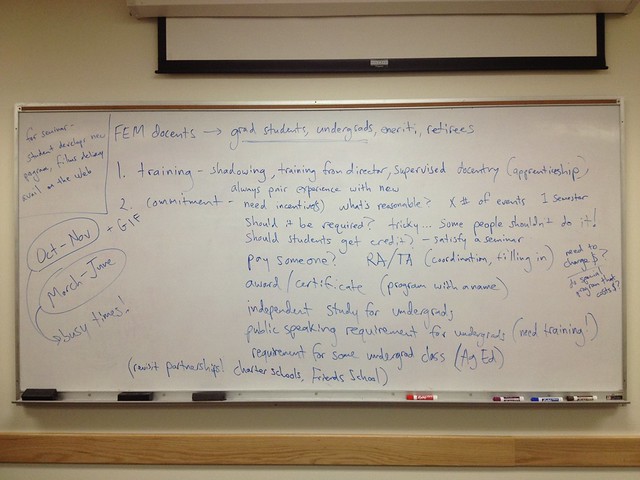 for seminar -
student develops new
program, films delivery
avail on the web
FEM docents → grad students, undergrads, emeriti, retirees
1. training - shadowing, training from director, supervised docentry (apprenticeship),
always pair experience with new
2. commitment - need incentive(s) what's reasonable? X # of events 1 semester
Should it be required? tricky... some people shouldn't do it!
Should students get credit? - satisfy a seminar
pay someone? RA/TA (coordination, filling in)
need to
change $?
do special
program that
costs $?
award/certificate (program with a name)
independent study for undergrads
public speaking requirement for undergrads (need training!)
requirement for some undergrad class (Ag Ed)
(revisit partnerships! charter schools, Friends School)
Oct-Nov + GIF
March-June
busy times!